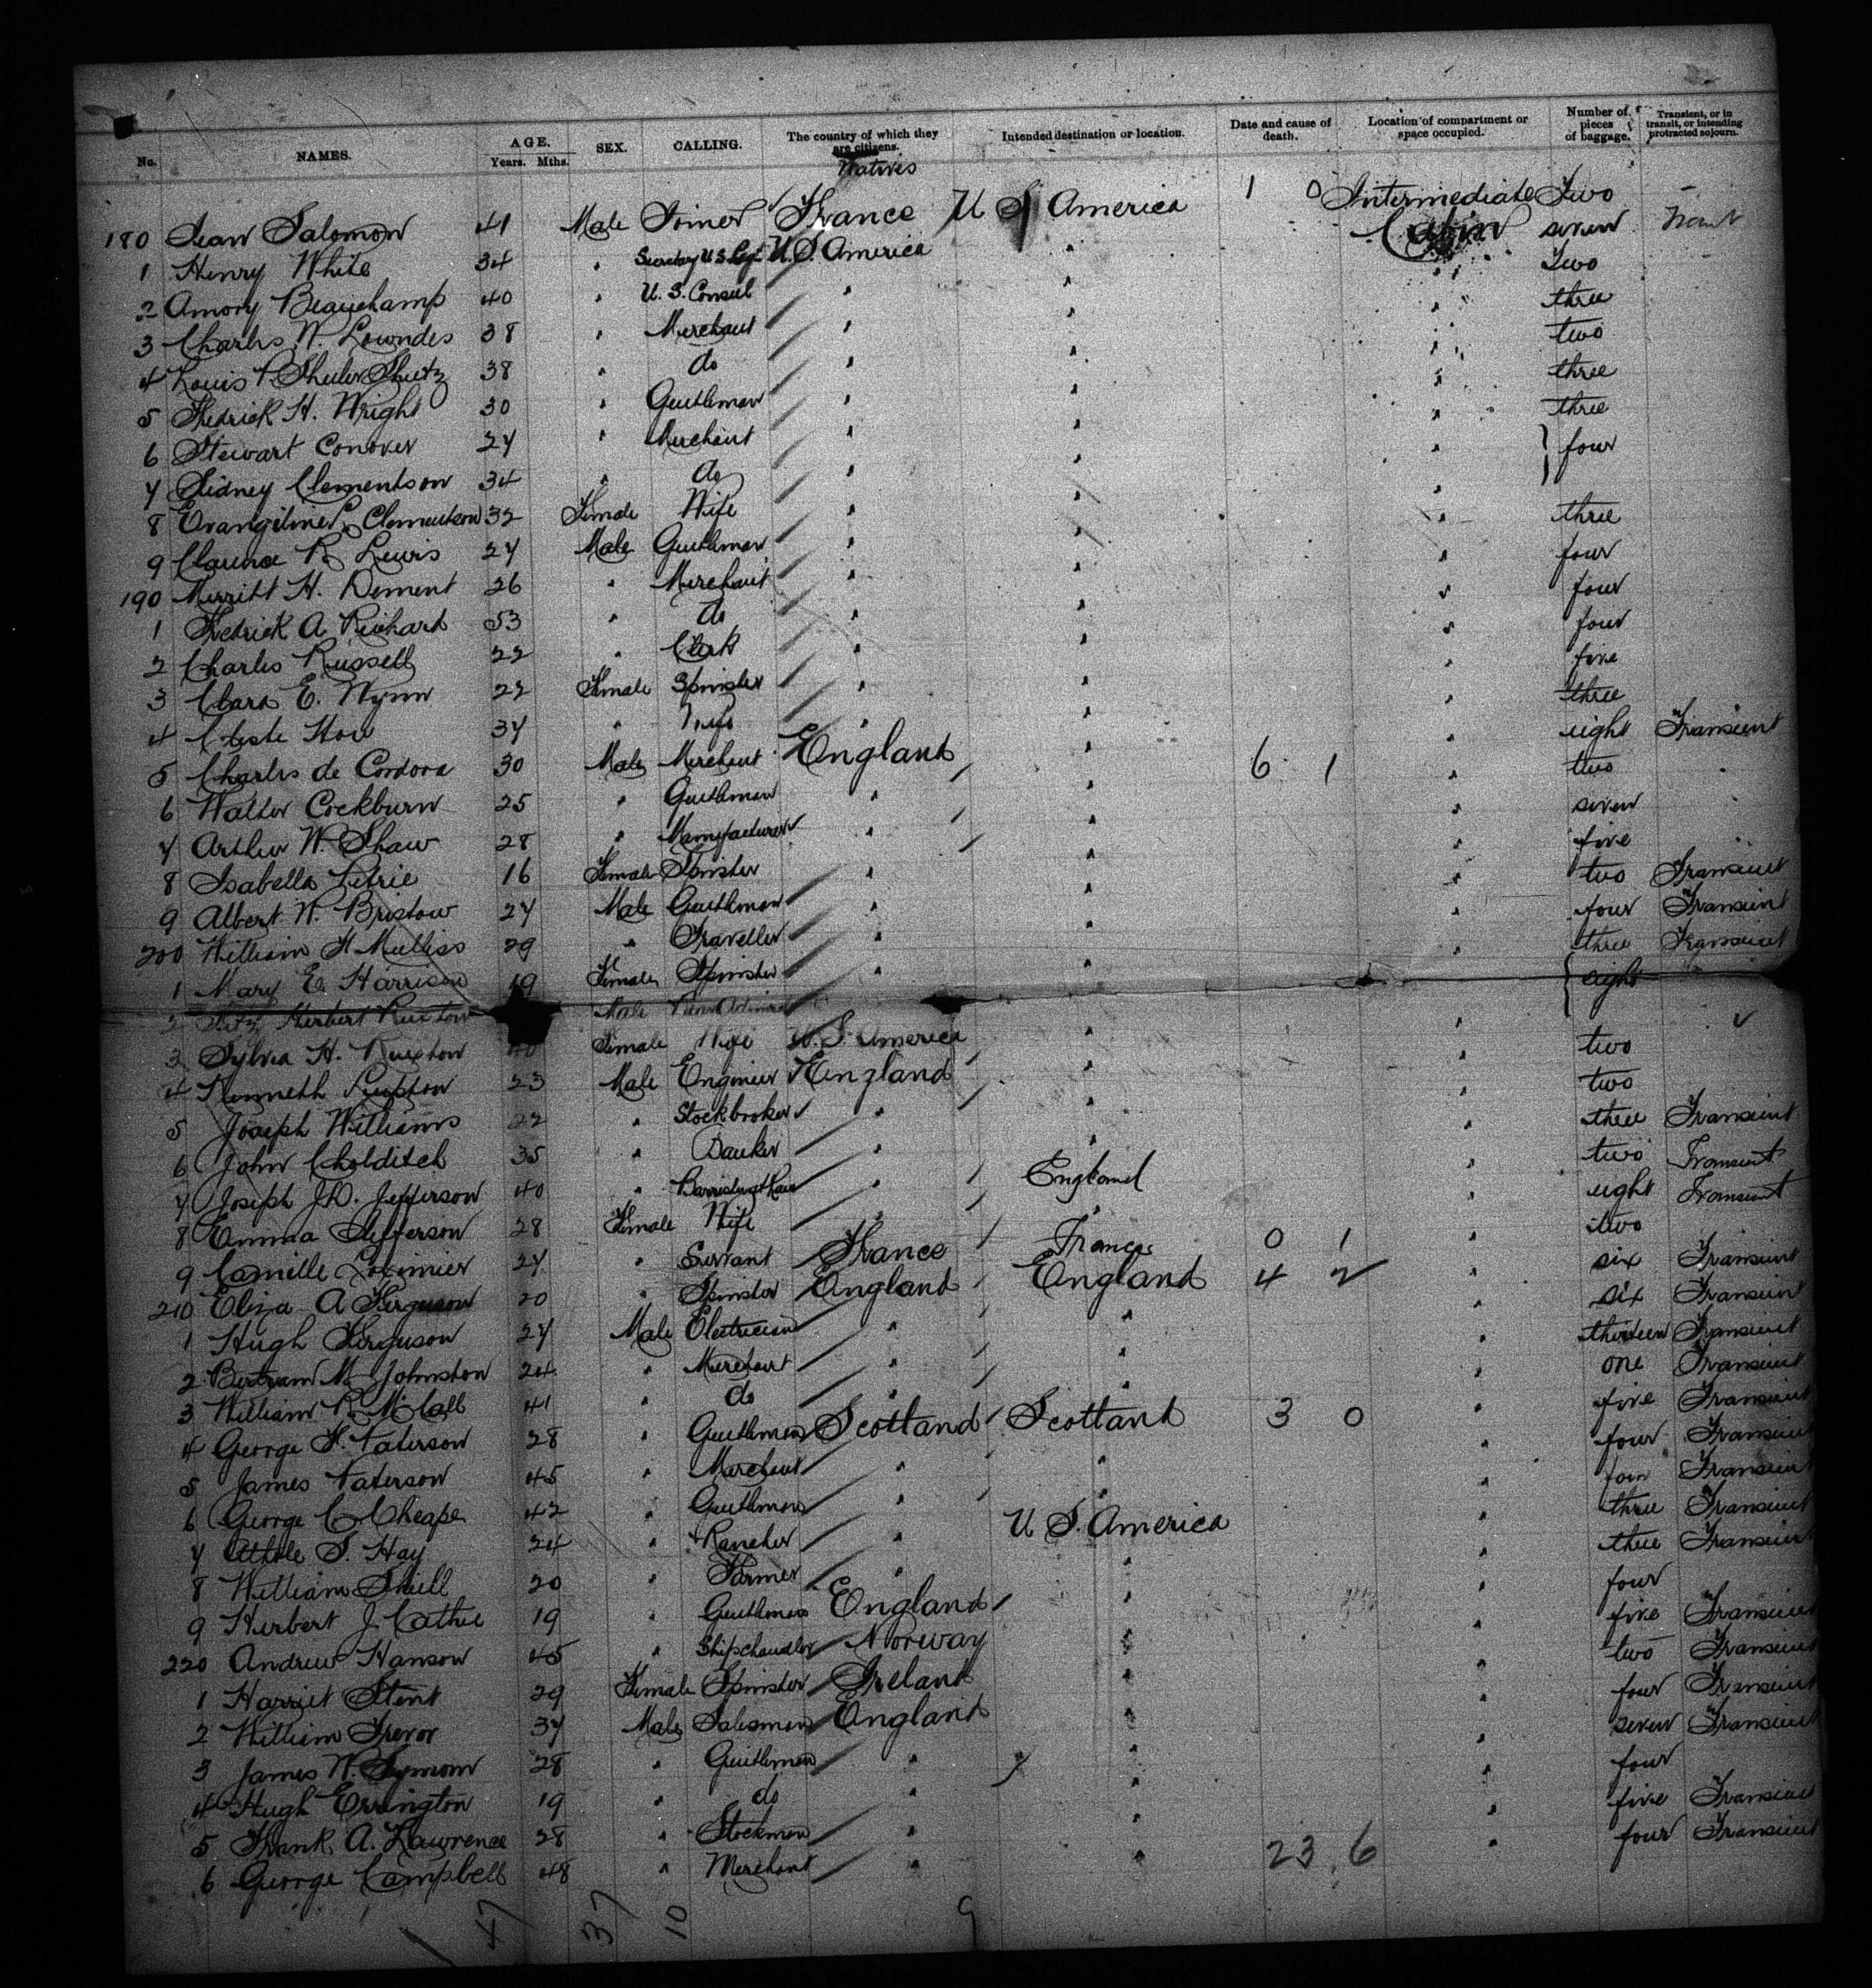 No. NAMES. AGE. Years. Mths. SEX. CALLING. The country of which they are citizens. Natives Intended destination or location. Date and cause of death. Location of compartment or space occupied. Number of pieces of baggage. Transient, or in transit, or intending protracted sojourn.
180 Jean Salomon 41 Male Joiner France U S America 1 0 Intermediate Two
1 Henry White 34 " Secretary U.S. U.S. America " Cabin seven
2 Amory Beauchamp 40 " U. S. Consul " " " Two
3 Charles W. Lowndes 38 " Merchant " " " three
4 Louis 38 " do " " " two
5 Fredrick H. Wright 30 " Gentleman " " " three
6 Stewart Conover 27 " Merchant " " " three
7 Sidney Clementson 34 " do " " " four
8 Evangiline Clementson 32 Female Wife " " "
9 Clarence R. Lewis 27 Male Gentleman " " " three
190 Merritt H. Dement 26 " Merchant " " " four
1 Fredrick A. Richard 53 " do " " " four
2 Charles Russell 22 " Clerk " " " four
3 Clara E. Wynn 22 Female Spinster " " " five
4 Celeste How 37 " Wife " " " three
5 Charles de Cordova 30 Male Merchant England " 6 1 " eight Transient
6 Walter Cockburn 25 " Gentleman " " " two "
7 Arthur W. Shaw 28 " Manufacturer " " " seven "
8 Isabella Petrie 16 Female Spinster " " " five "
9 Albert W. Bristow 27 Male Gentleman " " " two Transient
200 William H Mulliss 29 " Traveller " " " four Transient
1 Mary E. Harrison 19 Female Spinster " " " three Transient
2 Herbert Ruxton Male " eight
3 Sylvia H. Ruxton 40 Female Wife U. S. America " "
4 Kenneth Lupton 23 Male Engineer England " " two
5 Joseph Williams 22 " Stockbroker " " " two
6 John Cholditch 35 " Banker " " " three Transient
7 Joseph J.D. Jefferson 40 " Barrister at Law " England " two Transient
8 Emma Jefferson 28 Female Wife " " " eight Transient
9 Camille 27 " Servant France France 0 1 " two
210 Eliza A Ferguson 20 " Spinster England England 4 2 " six Transient
1 Hugh Ferguson 27 Male Electrician " " " six Transient
2 Bertram M Johnston 24 " Merchant " " " thirteen Transient
3 William R. McCall 41 " do " " " one Transient
4 George F. Paterson 28 " Gentleman Scotland Scotland 3 0 " five Transient
5 James Paterson 45 " Merchant " " " four Transient
6 George C. Cheape 42 " Gentleman " " " four Transient
7 Athole S. Hay 24 " Rancher " U S. America " three Transient
8 William Shiell 20 " Farmer " " " three Transient
9 Herbert J. Cathie 19 " Gentleman England " " four
220 Andrew Hanson 45 " Shipchandler Norway " " five Transient
1 Harriet Stent 29 Female Spinster Ireland " " two Transient
2 William Trevor 37 Male Salesman England " " four Transient
3 James W. Symon 28 " Gentleman " " " seven Transient
4 Hugh Errington 19 " do " " four
5 Frank A. Lawrence 28 " Stockman " " " five Transient
6 George Campbell 48 " Merchant " " 23 6 " four Transient
47 37 10 9